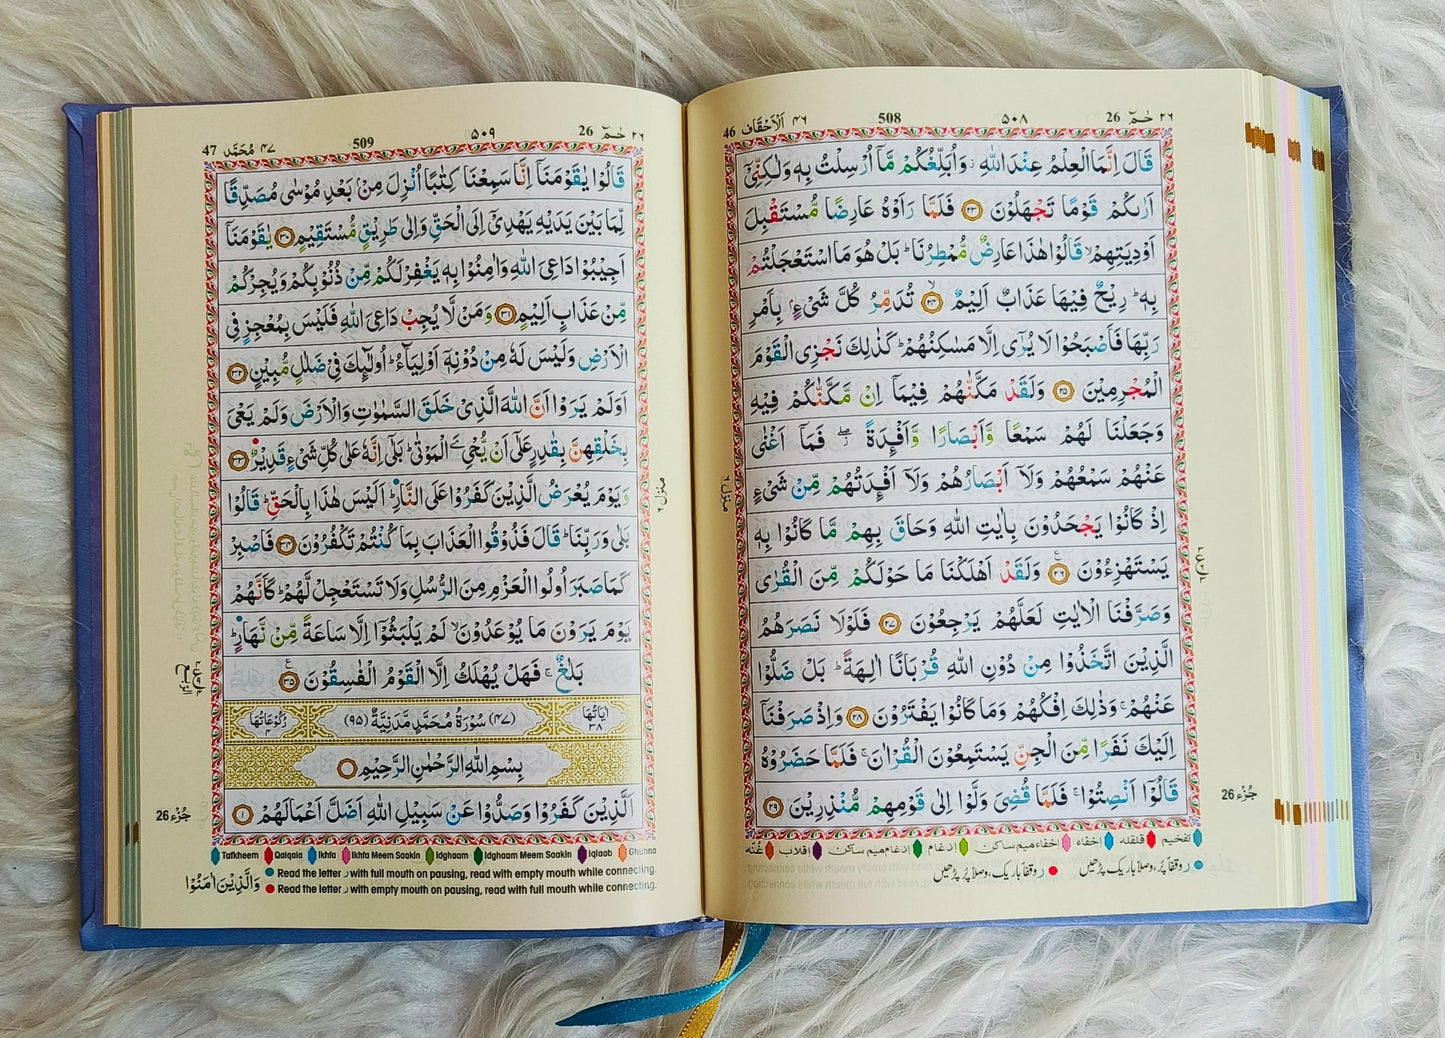 46 ٤٦ اَلْاَحْقَاف 508 ٥٠٨ 26 حٰمٓ ٢٦
قَالَ اِنَّمَا الْعِلْمُ عِنْدَ اللّٰهِ ۖ وَاُبَلِّغُكُمْ مَّاۤ اُرْسِلْتُ بِهٖ وَلٰكِنِّیْۤ
اَرٰىكُمْ قَوْمًا تَجْهَلُوْنَ ﴿٢٣﴾ فَلَمَّا رَاَوْهُ عَارِضًا مُّسْتَقْبِلَ
اَوْدِيَتِهِمْ ۙ قَالُوْا هٰذَا عَارِضٌ مُّمْطِرُنَا ؕ بَلْ هُوَ مَا اسْتَعْجَلْتُمْ
بِهٖ ؕ رِيْحٌ فِيْهَا عَذَابٌ اَلِيْمٌ ﴿٢٤﴾ ۙ تُدَمِّرُ كُلَّ شَیْءٍۭ بِاَمْرِ
رَبِّهَا فَاَصْبَحُوْا لَا يُرٰۤى اِلَّا مَسٰكِنُهُمْ ؕ كَذٰلِكَ نَجْزِى الْقَوْمَ
الْمُجْرِمِيْنَ ﴿٢٥﴾ وَلَقَدْ مَكَّنّٰهُمْ فِيْمَاۤ اِنْ مَّكَّنّٰكُمْ فِيْهِ
وَجَعَلْنَا لَهُمْ سَمْعًا وَّاَبْصَارًا وَّاَفْـِٕدَةً ۖ فَمَاۤ اَغْنٰى
عَنْهُمْ سَمْعُهُمْ وَلَاۤ اَبْصَارُهُمْ وَلَاۤ اَفْـِٕدَتُهُمْ مِّنْ شَیْءٍ
اِذْ كَانُوْا يَجْحَدُوْنَ بِاٰيٰتِ اللّٰهِ وَحَاقَ بِهِمْ مَّا كَانُوْا بِهٖ
يَسْتَهْزِءُوْنَ ﴿٢٦﴾ وَلَقَدْ اَهْلَكْنَا مَا حَوْلَكُمْ مِّنَ الْقُرٰى
وَصَرَّفْنَا الْاٰيٰتِ لَعَلَّهُمْ يَرْجِعُوْنَ ﴿٢٧﴾ فَلَوْلَا نَصَرَهُمُ
الَّذِيْنَ اتَّخَذُوْا مِنْ دُوْنِ اللّٰهِ قُرْبَانًا اٰلِهَةً ؕ بَلْ ضَلُّوْا
عَنْهُمْ ۚ وَذٰلِكَ اِفْكُهُمْ وَمَا كَانُوْا يَفْتَرُوْنَ ﴿٢٨﴾ وَاِذْ صَرَفْنَاۤ
اِلَيْكَ نَفَرًا مِّنَ الْجِنِّ يَسْتَمِعُوْنَ الْقُرْاٰنَ ۚ فَلَمَّا حَضَرُوْهُ
قَالُوْۤا اَنْصِتُوْا ۚ فَلَمَّا قُضِیَ وَلَّوْا اِلٰى قَوْمِهِمْ مُّنْذِرِيْنَ ﴿٢٩﴾
منزل ٦
جُزْء 26
تفخیم قلقله إخفاء إخفاء میم ساکن إدغام إدغام میم ساکن إقلاب غُنّه
ر وقفاً پُر، وصلاً باریک پڑھیں ر وقفاً باریک، وصلاً پُر پڑھیں
47 ٤٧ مُحَمَّد 509 ٥٠٩ 26 حٰمٓ ٢٦
قَالُوْا يٰقَوْمَنَاۤ اِنَّا سَمِعْنَا كِتٰبًا اُنْزِلَ مِنْۢ بَعْدِ مُوْسٰى مُصَدِّقًا
لِّمَا بَيْنَ يَدَيْهِ يَهْدِیْۤ اِلَى الْحَقِّ وَاِلٰى طَرِيْقٍ مُّسْتَقِيْمٍ ﴿٣٠﴾ يٰقَوْمَنَاۤ
اَجِيْبُوْا دَاعِیَ اللّٰهِ وَاٰمِنُوْا بِهٖ يَغْفِرْ لَكُمْ مِّنْ ذُنُوْبِكُمْ وَيُجِرْكُمْ
مِّنْ عَذَابٍ اَلِيْمٍ ﴿٣١﴾ وَمَنْ لَّا يُجِبْ دَاعِیَ اللّٰهِ فَلَيْسَ بِمُعْجِزٍ فِی
الْاَرْضِ وَلَيْسَ لَهٗ مِنْ دُوْنِهٖۤ اَوْلِيَآءُ ؕ اُولٰٓئِكَ فِیْ ضَلٰلٍ مُّبِيْنٍ ﴿٣٢﴾
اَوَلَمْ يَرَوْا اَنَّ اللّٰهَ الَّذِیْ خَلَقَ السَّمٰوٰتِ وَالْاَرْضَ وَلَمْ يَعْیَ
بِخَلْقِهِنَّ بِقٰدِرٍ عَلٰۤى اَنْ يُّحْیِۦَ الْمَوْتٰى ؕ بَلٰۤى اِنَّهٗ عَلٰى كُلِّ شَیْءٍ قَدِيْرٌ ﴿٣٣﴾
وَيَوْمَ يُعْرَضُ الَّذِيْنَ كَفَرُوْا عَلَى النَّارِ ؕ اَلَيْسَ هٰذَا بِالْحَقِّ ؕ قَالُوْا
بَلٰى وَرَبِّنَا ؕ قَالَ فَذُوْقُوا الْعَذَابَ بِمَا كُنْتُمْ تَكْفُرُوْنَ ﴿٣٤﴾ فَاصْبِرْ
كَمَا صَبَرَ اُولُوا الْعَزْمِ مِنَ الرُّسُلِ وَلَا تَسْتَعْجِلْ لَّهُمْ ؕ كَاَنَّهُمْ
يَوْمَ يَرَوْنَ مَا يُوْعَدُوْنَ ۙ لَمْ يَلْبَثُوْۤا اِلَّا سَاعَةً مِّنْ نَّهَارٍ ؕ
بَلٰغٌ ۚ فَهَلْ يُهْلَكُ اِلَّا الْقَوْمُ الْفٰسِقُوْنَ ﴿٣٥﴾
اٰيَاتُهَا ٣٨ (٤٧) سُوْرَةُ مُحَمَّدٍ مَّدَنِيَّةٌ (٩٥) رُكُوْعَاتُهَا ٤
بِسْمِ اللّٰهِ الرَّحْمٰنِ الرَّحِيْمِ
اَلَّذِيْنَ كَفَرُوْا وَصَدُّوْا عَنْ سَبِيْلِ اللّٰهِ اَضَلَّ اَعْمَالَهُمْ ﴿١﴾
منزل ٦
جُزْء 26
Tafkheem Qalqala Ikhfa Ikhfa Meem Saakin Idghaam Idghaam Meem Saakin Iqlaab Ghunna
Read the letter ر with full mouth on pausing, read with empty mouth while connecting.
Read the letter ر with empty mouth on pausing, read with full mouth while connecting.
وَالَّذِيْنَ اٰمَنُوْا